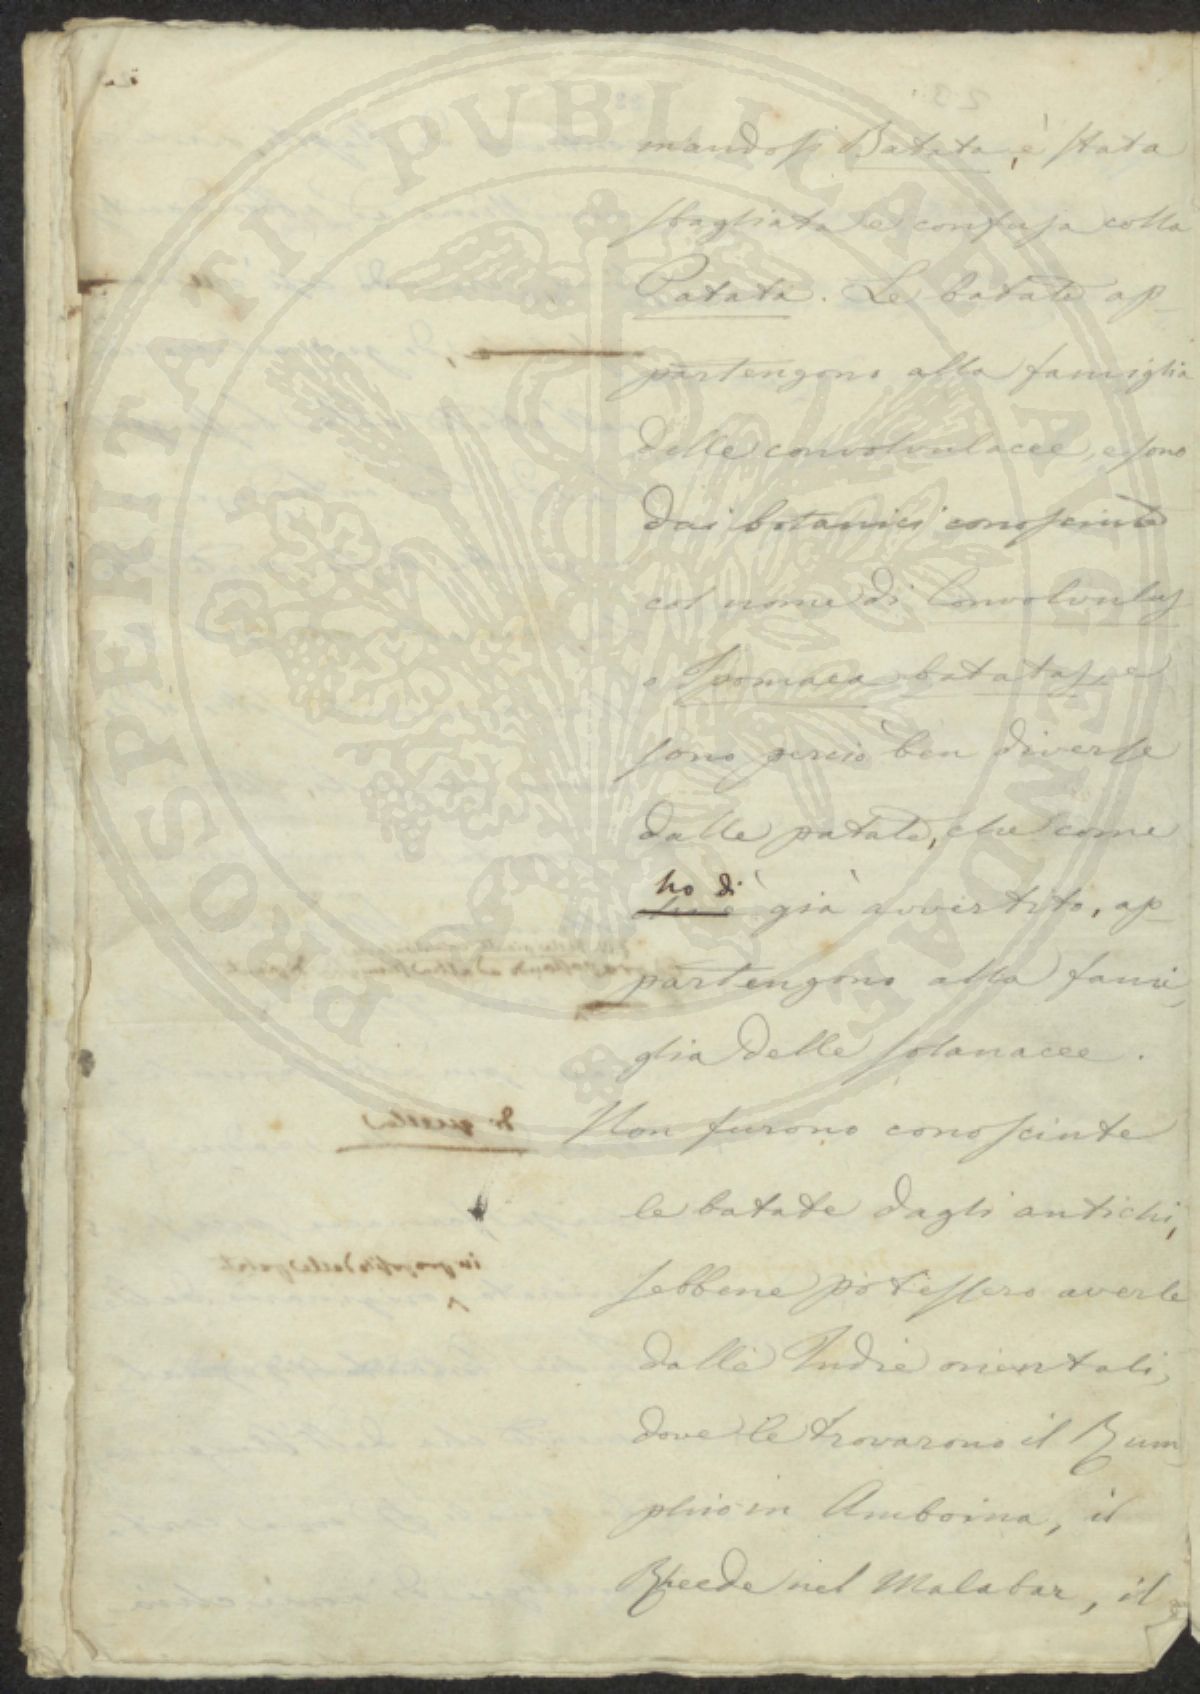 mandosi Batata, è stata
sbagliata e confusa colla
Patata. Le batate ap-
partengono alla famiglia
delle convolvulacee, e sono
dai botanici conosciute
col nome di Convolvulus
o Ipomaea batatas, e
sono perciò ben diverse
dalle patate, che come
ho di
già avvertito, ap-
partengono alla fami-
glia delle solanacee.
Non furono conosciute
le batate dagli antichi,
sebbene potessero averle
dalle Indie orientali,
dove le trovarono il Rum-
phio in Amboina, il
Rheede nel Malabar, il
PROSPERITATI PVBLICAE AVGENDAE